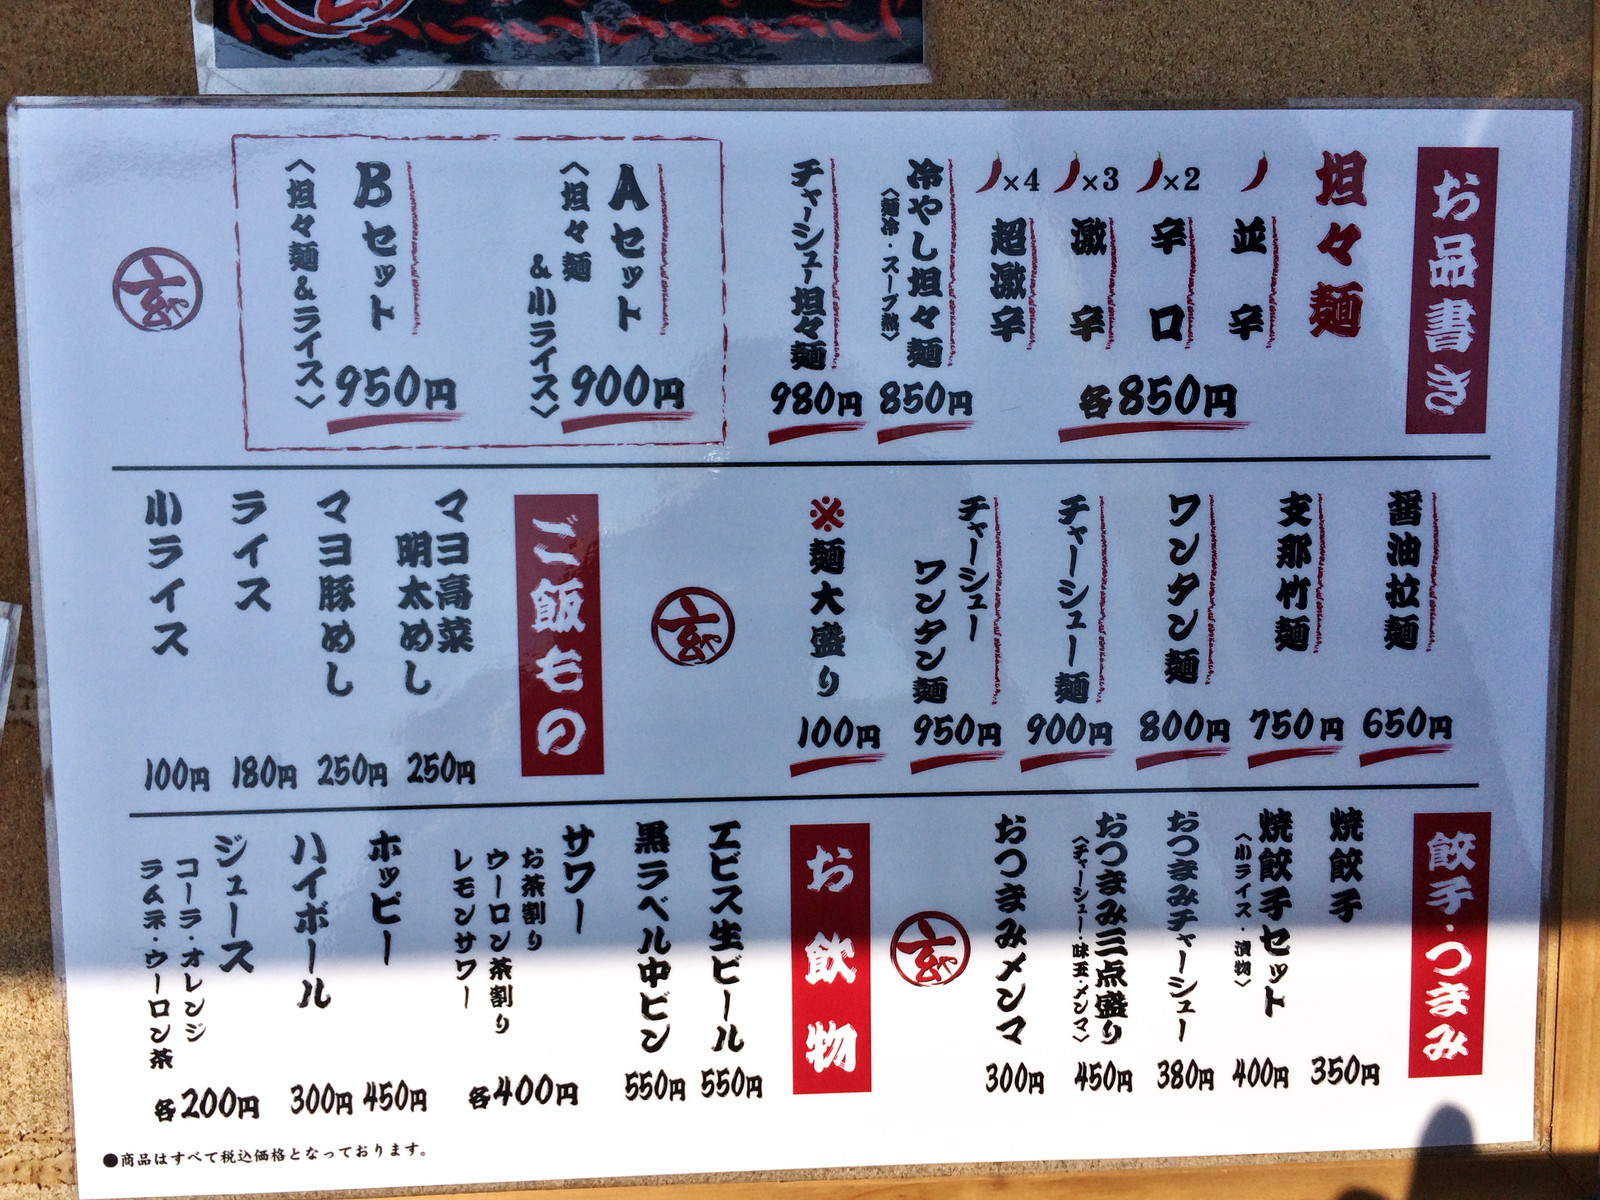 お品書き
坦々麺
並辛
×2
辛口
×3
激辛
×4
超激辛
各850円
冷やし坦々麺
〈麺冷・スープ熱〉
850円
チャーシュー坦々麺
980円
Aセット
〈坦々麺
&小ライス〉
900円
Bセット
〈坦々麺&ライス〉
950円
玄や
醤油拉麺
650円
支那竹麺
750円
ワンタン麺
800円
チャーシュー麺
900円
チャーシュー
ワンタン麺
950円
※麺大盛り
100円
玄や
ご飯もの
マヨ高菜
明太めし
250円
マヨ豚めし
250円
ライス
180円
小ライス
100円
餃子・つまみ
焼餃子
350円
焼餃子セット
〈小ライス・漬物〉
400円
おつまみチャーシュー
380円
おつまみ三点盛り
〈チャーシュー・味玉・メンマ〉
450円
おつまみメンマ
300円
玄や
お飲物
エビス生ビール
550円
黒ラベル中ビン
550円
サワー
お茶割り
ウーロン茶割り
レモンサワー
各400円
ホッピー
450円
ハイボール
300円
ジュース
コーラ・オレンジ
ラムネ・ウーロン茶
各200円
●商品はすべて税込価格となっております。